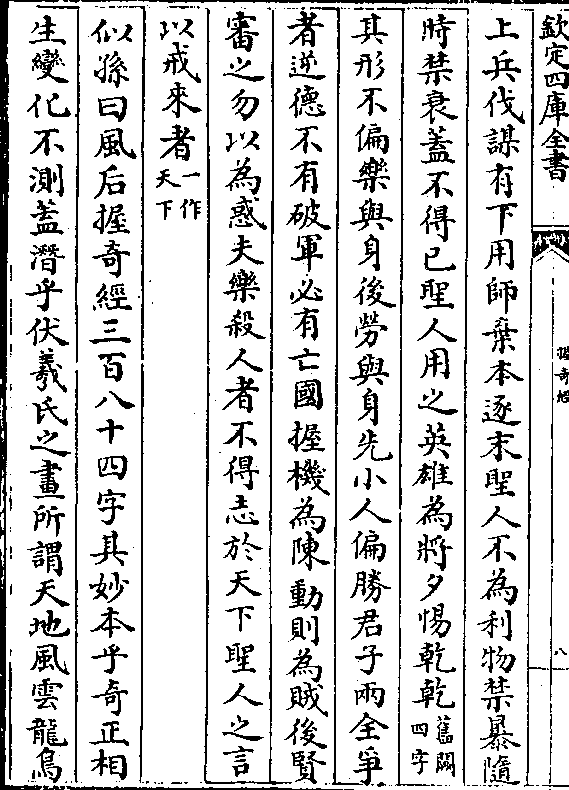 欽定四庫全書
握奇經
八
上兵伐謀有下用師棄本逐末聖人不為利物禁暴隨
時禁衰蓋不得已聖人用之英雄為將夕惕乾乾舊闕四字
其形不偏樂與身後勞與身先小人偏勝君子兩全爭
者逆德不有破軍必有亡國握機為陳動則為賊後賢
審之勿以為惑夫樂殺人者不得志於天下聖人之言
以戒來者一作天下
似孫曰風后握奇經三百八十四字其妙本乎奇正相
生變化不測蓋潛乎伏羲氏之畫所謂天地風雲龍鳥